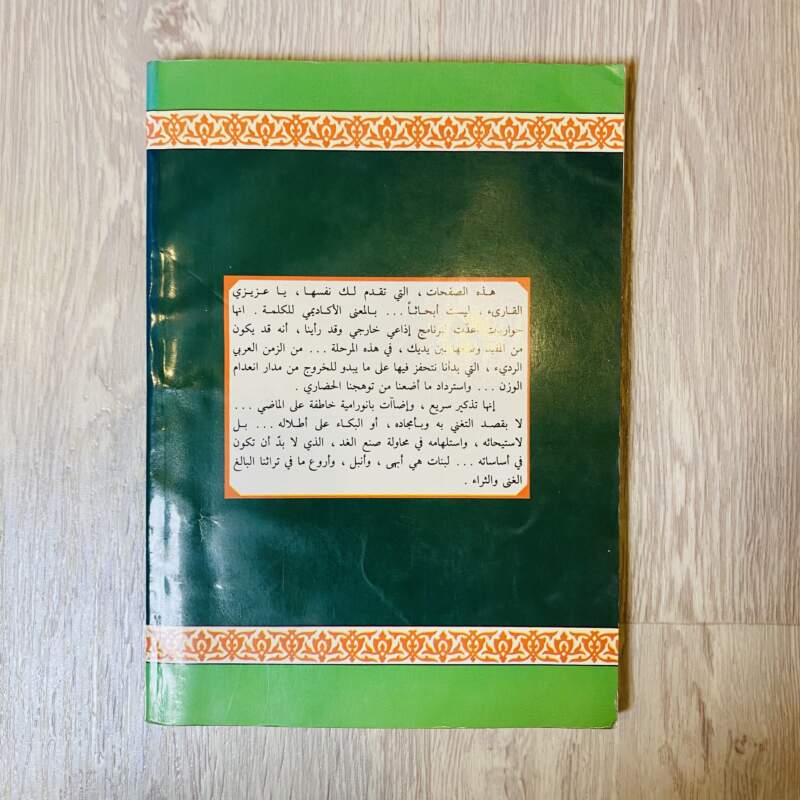 هذه الصفحات ، التي تقدم لك نفسها ، يا عزيزي
القارىء ، ليست أبحاثاً ... بالمعنى الأكاديمي للكلمة . انها
حواريات أعدّت لبرنامج إذاعي خارجي وقد رأينا ، أنه قد يكون
من المفيد وضعها بين يديك ، في هذه المرحلة ... من الزمن العربي
الرديء ، التي بدأنا نتحفز فيها على ما يبدو للخروج من مدار انعدام
الوزن ... واسترداد ما أضعنا من توهجنا الحضاري .
إنها تذكير سريع ، وإضاآت بانورامية خاطفة على الماضي ...
لا بقصد التغني به وبأمجاده ، أو البكاء على أطلاله ... بل
لاستيحائه ، واستلهامه في محاولة صنع الغد ، الذي لا بدّ أن تكون
في أساساته ... لبنات هي أبهى ، وأنبل ، وأروع ما في تراثنا البالغ
الغنى والثراء .